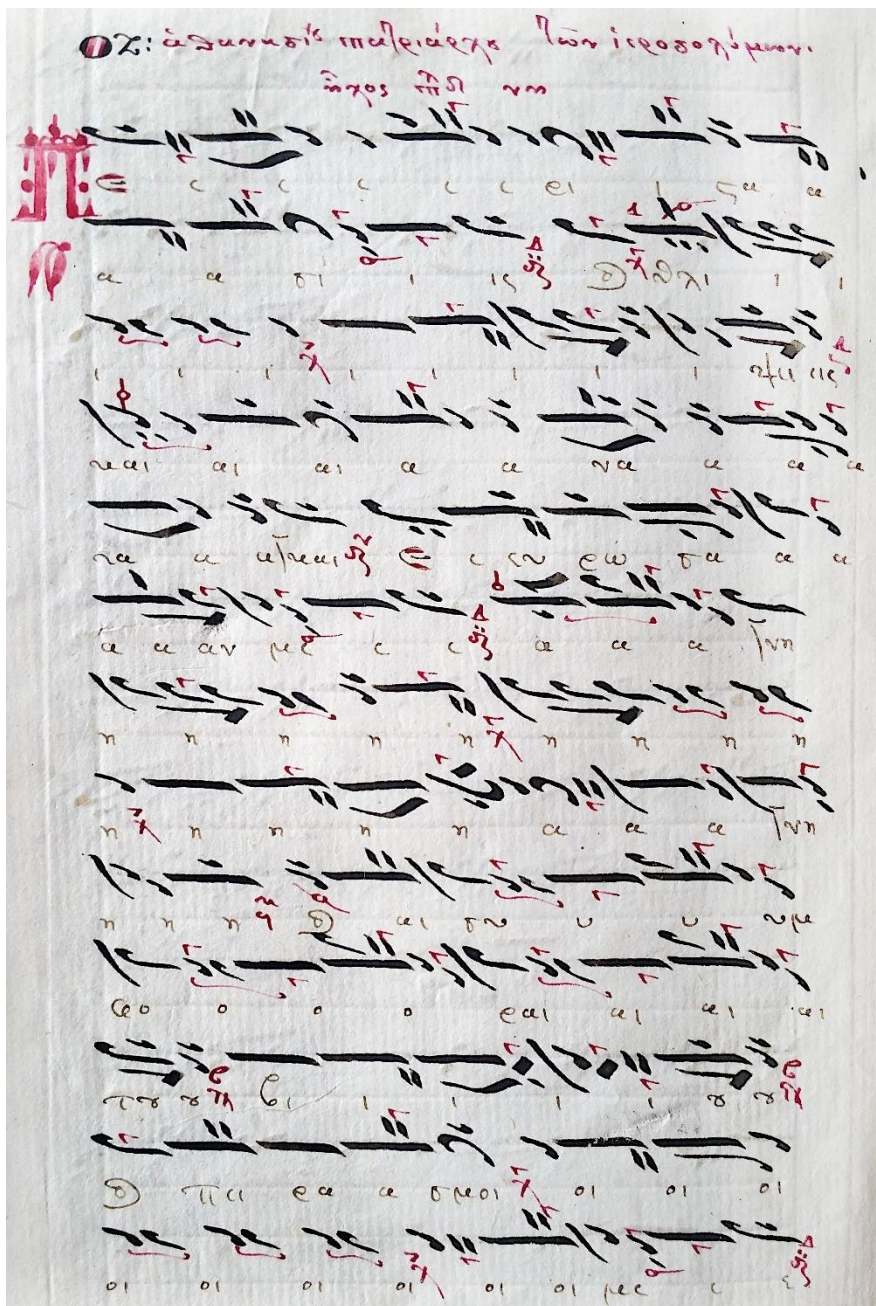 ΟΖ: ἀθανασίȣ πατριάρχȣ τῶν ἱεροσολύμων.
ἦχος πλ δ νη
Πε ε ε ε ε ε ρι ι ςα α
α α σι ι ις ϗ θλι ι ι
ι ι ι ι ι ι ι ι ψι ις
και αι αι α α να α α α
να α αγκαι Ε ε ευ ρω σα α α
α α αν με ε ε α α α γνη
η η η η η η η η η
η η η η η α α α γνη
η η η ϗ αι συ υ υ υμ
φο ο ο ο ραι αι αι αι
τȣ ȣ βι ι ι ι ι ȣ ȣ
ϗ πει ρα α σμοι οι οι οι
οι οι οι οι οι οι με ε ε